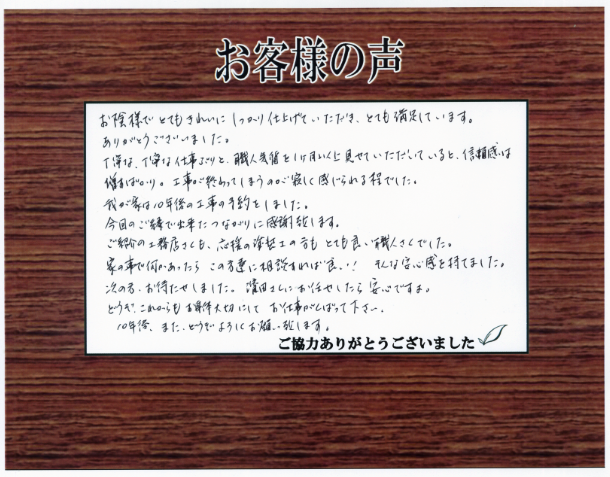 お客様の声
お陰様で とてもきれいに しっかり仕上げていただき、とても満足しています。
ありがとうございました。
丁寧な、丁寧な仕事ぶりと、職人気質を1ヶ月いじょう見せていただいていると、信頼感は
増すばかり。工事が終わってしまうのが寂しく感じられる程でした。
我が家は10年後の工事の予約をしました。
今回のご縁で出来たつながりに感謝致します。
ご紹介の工務店さんも、応援の塗装工の方も とても良い職人さんでした。
家の事で何かあったら この方達に相談すれば良い!! そんな安心感を持てました。
次の方、お待たせしました。窪田さんにお任せしたら安心ですよ。
どうぞ、これからも お身体大切にして お仕事がんばって下さい。
10年後、また、どうぞ よろしくお願い致します。
ご協力ありがとうございました